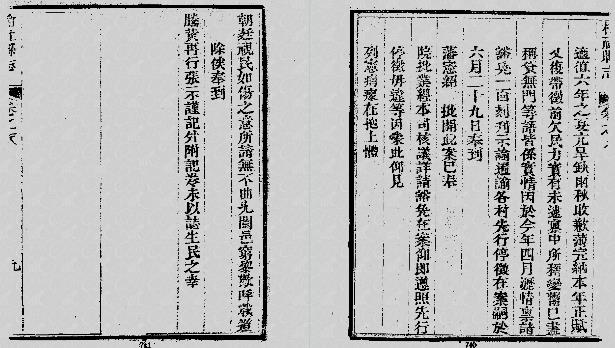 適道六年之夏亢旱缺雨秋收歉薄完納本年正賦
又復帶徵前欠民力實有未逮稟中所稱變鬻已盡
稱貸無門等語皆係實情因於今年四月瀝情稟請
豁免一面刻刊示諭通諭各村先行停徵在案嗣於
六月二十九日奉到
藩憲 批開此案已奉
院批業經本司核議詳請豁免在案仰即遵照先行
停徵毋違等因蒙此仰見
列憲痌瘝在抱上體
朝廷視民如傷之意所諭無不曲允闔邑窮黎歡呼載道
除俟奉到
謄黃再行張示謹記外附記卷末以誌生民之幸
九
741
740